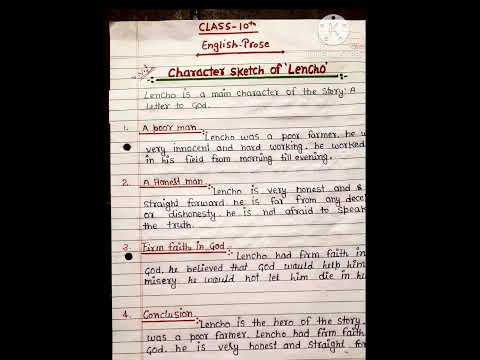 CLASS-10th
English-Prose
Character sketch of 'Lencho'
Lencho is a main character of the story 'A
letter to God.
1. A poor man :- Lencho was a poor farmer. he w
very innocent and hard working. he worked
in his field from morning till evening.
2. A Honest man :- Lencho is very honest and s
straight forward. he is far from any dece
or dishonesty. he is not afraid to speak
the truth.
3. Firm faith in God :- Lencho had firm faith in
God. he believed that God would help him
misery. he would not let him die in hu
4. Conclusion :- Lencho is the hero of the story.
was a poor farmer. Lencho had firm faith
God. he is very honest and straight for